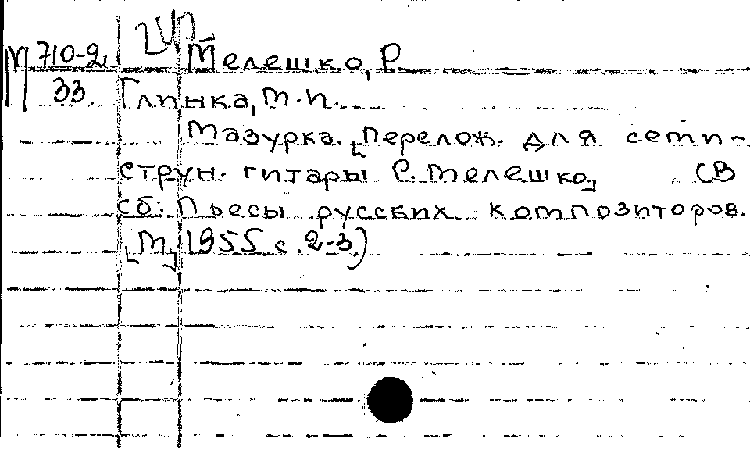 М 710-2 Мелешко, Р.
33. Глинка, М.И.
Мазурка. [Перелож. для семи-
струн. гитары Р. Мелешко] (В
сб: Пьесы русских композиторов.
[М.] 1955 с. 2-3.)